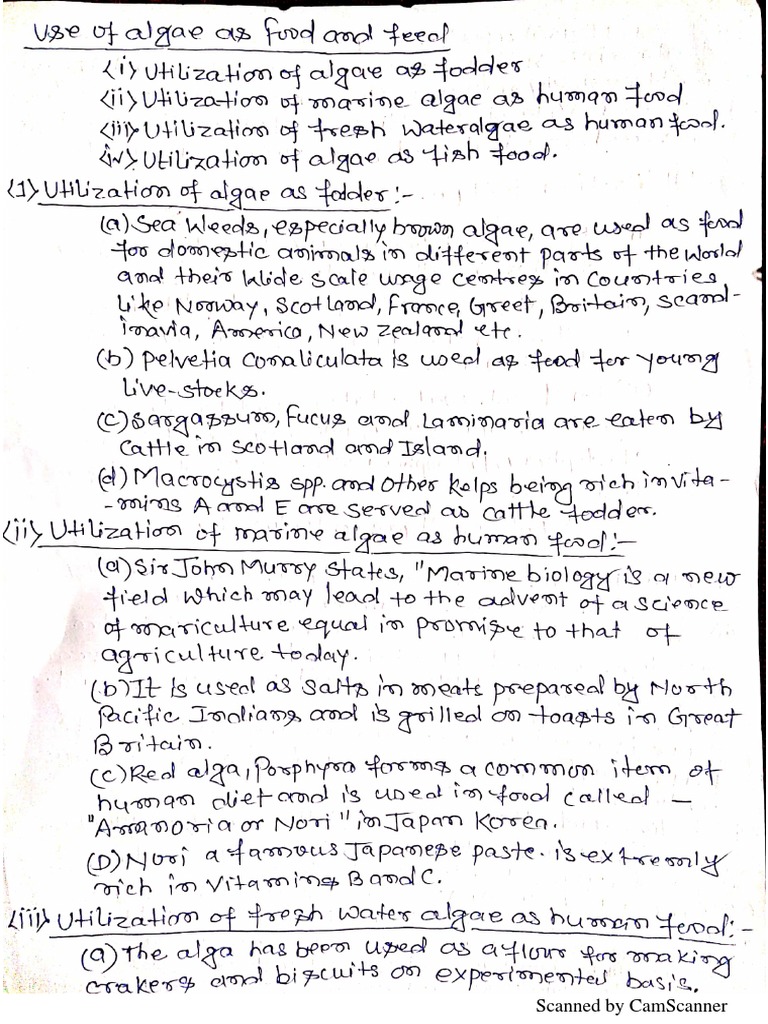 Use of algae as food and feed
<i> Utilization of algae as fodder
<ii> Utilization of marine algae as human food
<iii> Utilization of fresh wateralgae as human food.
<iv> Utilization of algae as fish food.
<1> Utilization of algae as fodder :-
(a) Sea weeds, especially brown algae, are used as food
for domestic animals in different parts of the world
and their wide scale usage centres in countries
like Norway, Scotland, France, Greet, Britain, Scand-
inavia, America, New Zealand etc.
(b) Pelvetia conaliculata is used as food for young
live-stocks.
(c) Sargassum, Fucus and Laminaria are eaten by
cattle in Scotland and Island.
(d) Macrocystis spp. and other kelps being rich in vita-
-mins A and E are served as cattle fodder.
<ii> Utilization of marine algae as human food :-
(a) Sir John Murry states, "Marine biology is a new
field which may lead to the advent of a science
of mariculture equal in promise to that of
agriculture today.
(b) It is used as salts in meats prepared by North
Pacific Indians and is grilled on toasts in Great
Britain.
(c) Red alga, Porphyra forms a common item of
human diet and is used in food called -
"Amanoria or Nori" in Japan Korea.
(D) Nori a famous Japanese paste. is extremly
rich in vitamins B and C.
<iii> Utilization of fresh water algae as human food :-
(a) The alga has been used as a flour for making
crakers and biscuits on experimented basis.
Scanned by CamScanner